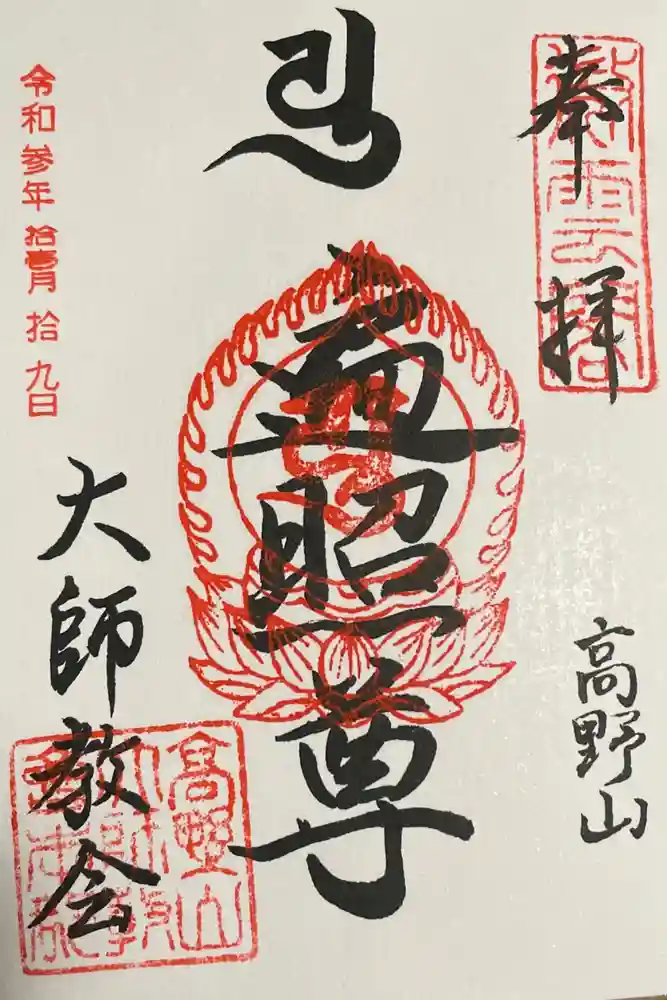 奉拝
高野山
遍照尊
令和参年拾壱月拾九日
大師教会
高野山
大師教